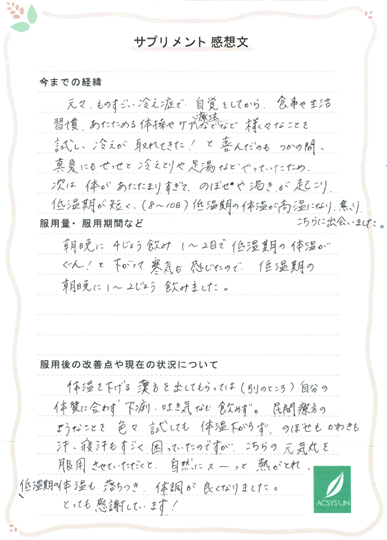 サプリメント 感想文
今までの経緯
元々、ものすごい冷え症で 自覚をしてから、食事や生活
習慣、あたためる体操やケア、療法などなど 様々なことを
試し、冷えが 取れてきた!と 喜んだのも つかの間、
真夏にもせっせと 冷えとりや足湯などやっていたため、
次は 体が あたたまりすぎて、のぼせや渇きが 起こり、
低温期が短く、(8〜10日) 低温期の体温が高温になり、焦り、
こちらに出会いました。
服用量・服用期間など
朝晩に 4じょう飲み 1〜2日で 低温期の体温が
ぐん!と 下がって 寒気も 感じたので、低温期の
朝晩に 1〜2じょう 飲みました。
服用後の改善点や現在の状況について
体温を下げる 漢方を出してもらっては (別のところ) 自分の
体質に合わず 下痢・吐き気など 飲めず。民間療方の
ようなことを 色々 試しても 体温下がらず、のぼせも かわきも
汗、寝汗もすごく 困っていたのですが、こちらの 元気丸を
服用 させていただくと、自然に スーっと 熱がとれ、
低温期の体温も 落ちつき、体調が 良くなりました。
とっても 感謝しています!
ACSYS UN